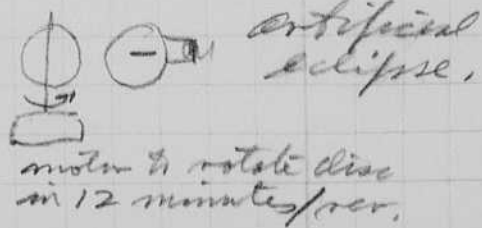 artificial
eclipse.
motor to rotate disc
in 12 minutes/rev.